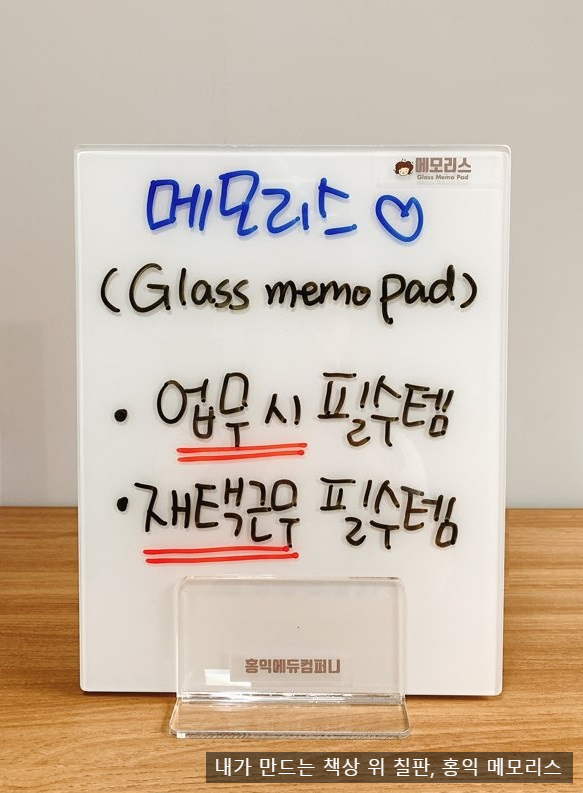 메모리스
Glass Memo Pad
메모리스♡
(Glass memo pad)
• 업무 시 필수템
• 재택근무 필수템
홍익에듀컴퍼니
내가 만드는 책상 위 칠판, 홍익 메모리스